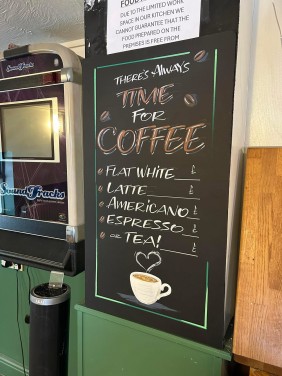 FOOD
DUE TO THE LIMITED WORK
SPACE IN OUR KITCHEN WE
CANNOT GUARANTEE THAT THE
FOOD PREPARED ON THE
PREMISES IS FREE FROM
SoundTracks
SoundTracks
THERE'S ALWAYS
TIME
FOR
COFFEE
FLAT WHITE £
LATTE £
AMERICANO £
ESPRESSO £
OR TEA! £